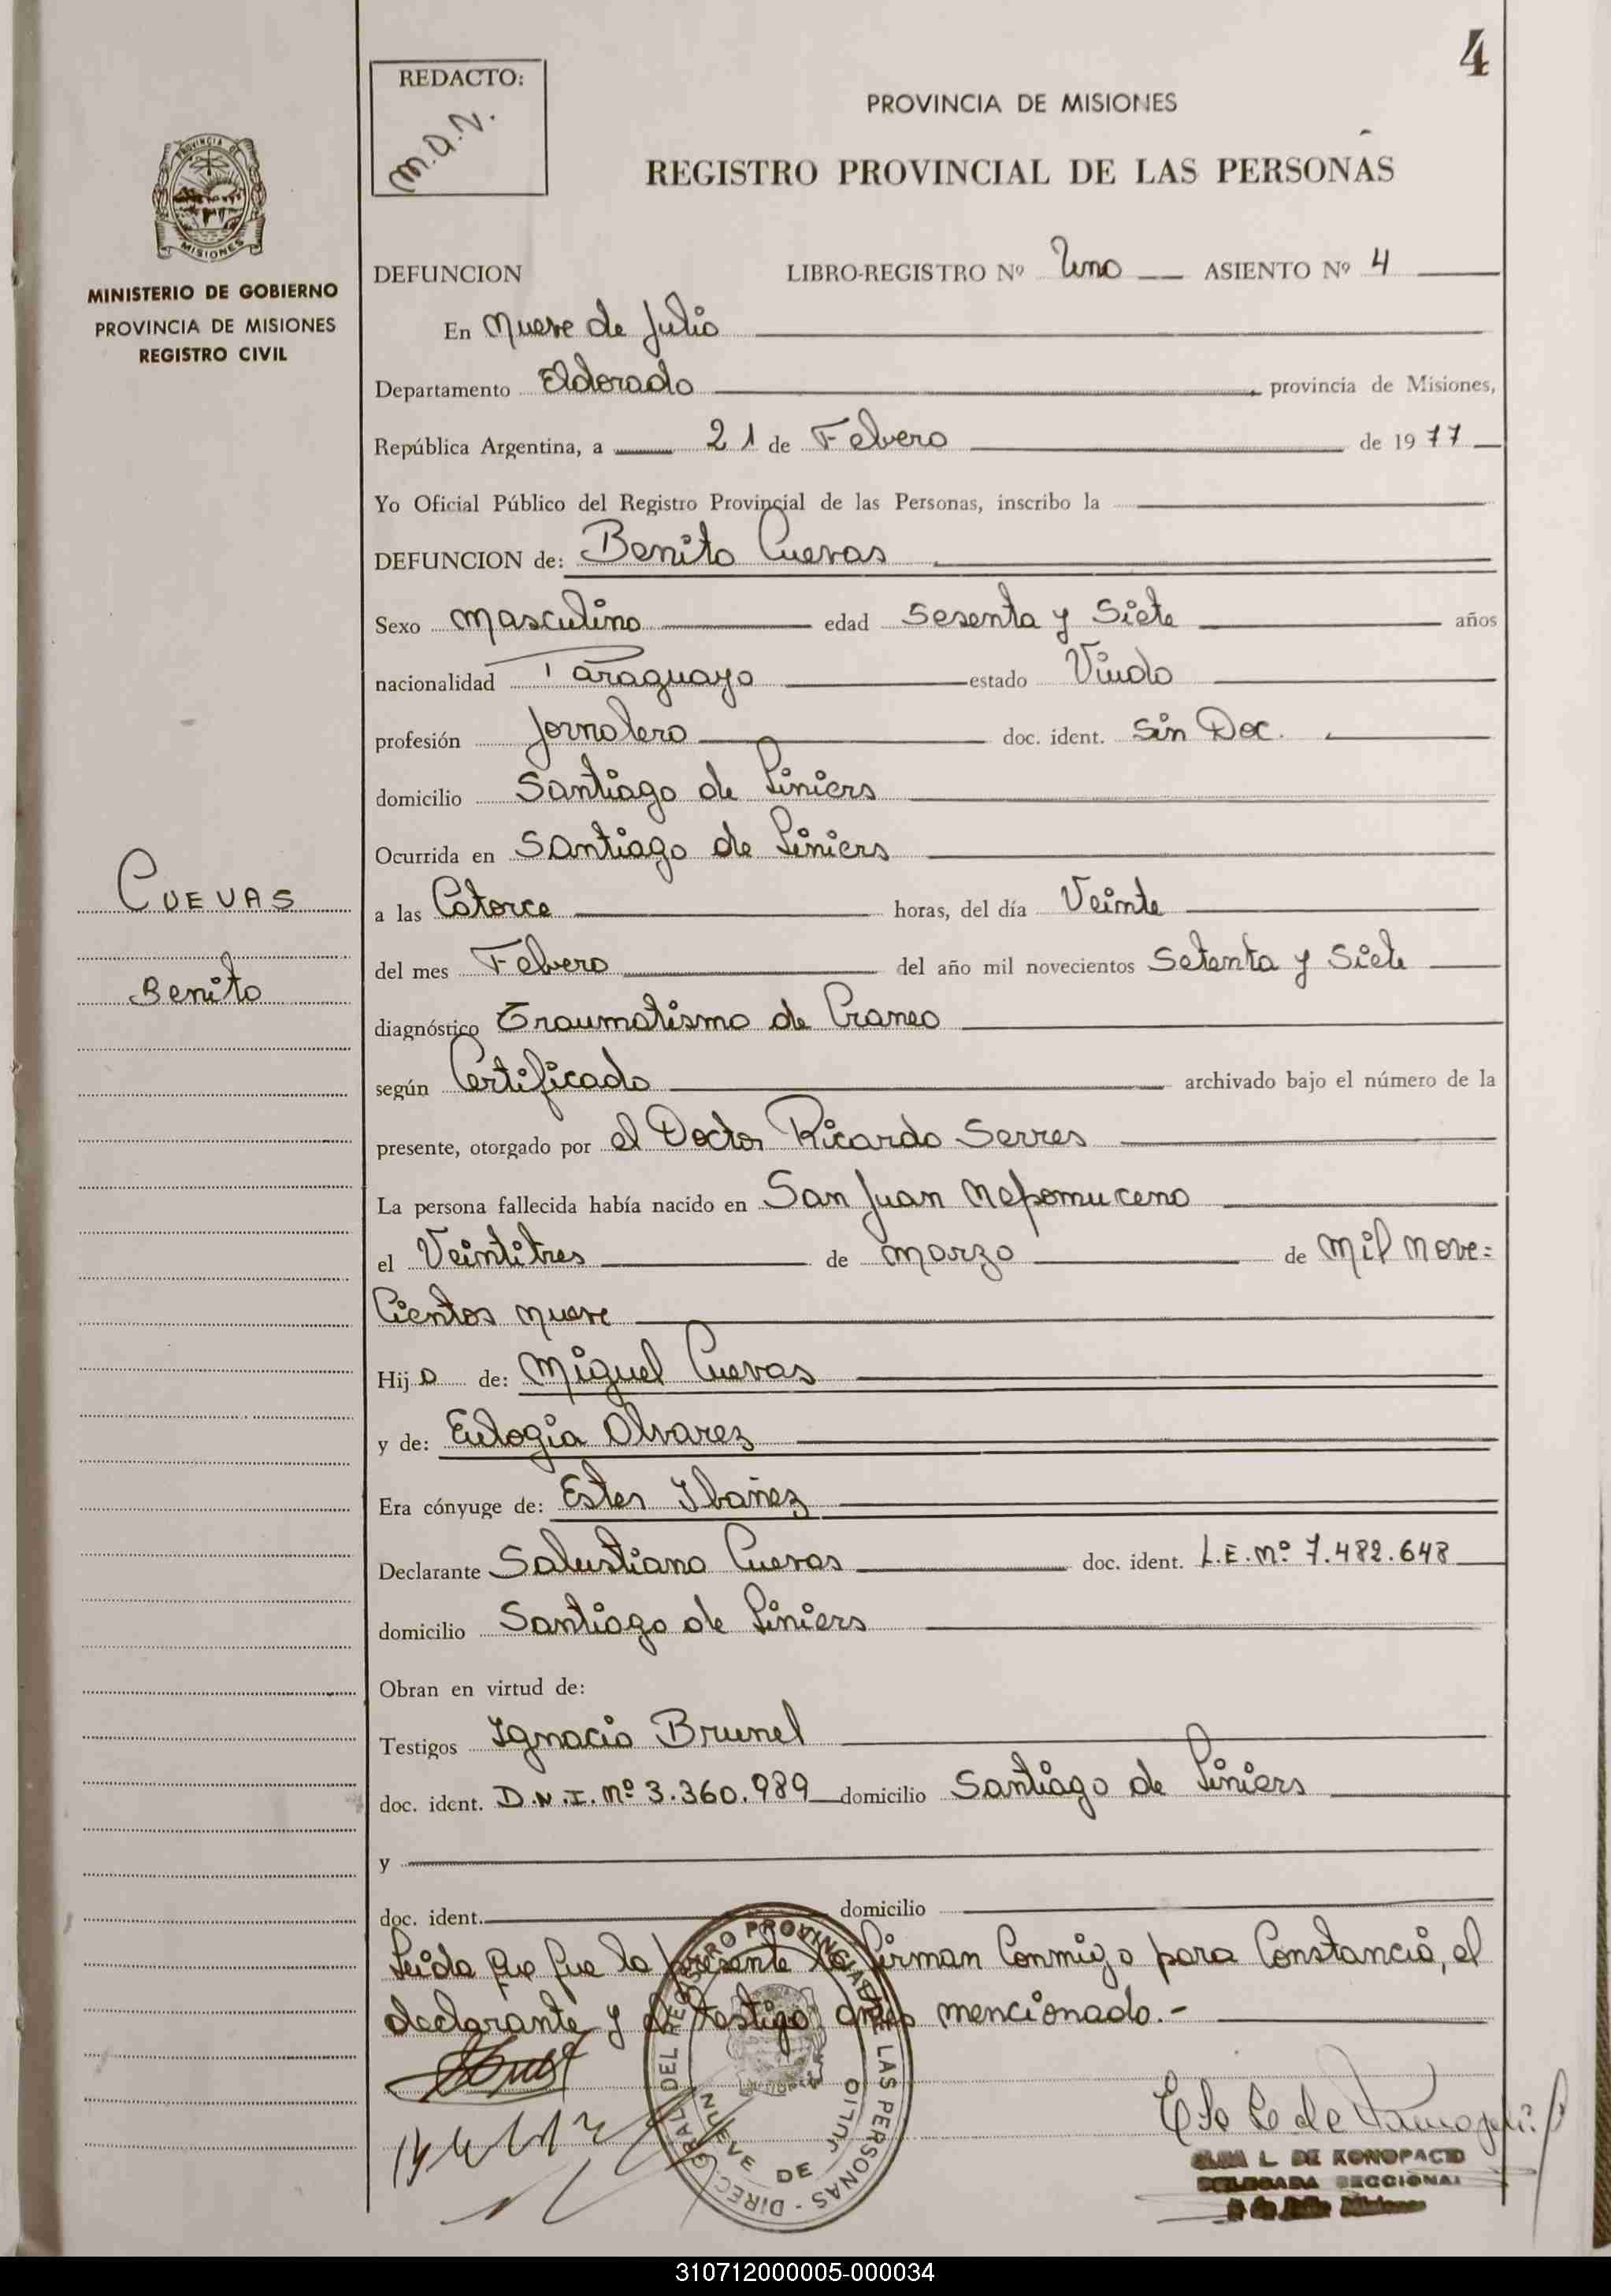 4
REDACTO:
M.A.V.
PROVINCIA DE MISIONES
REGISTRO PROVINCIAL DE LAS PERSONAS
PROVINCIA DE
MISIONES
MINISTERIO DE GOBIERNO
PROVINCIA DE MISIONES
REGISTRO CIVIL
CUEVAS
Benito
DEFUNCION LIBRO-REGISTRO Nº Uno ASIENTO Nº 4
En Nueve de Julio
Departamento Eldorado, provincia de Misiones,
República Argentina, a 21 de Febrero de 1977
Yo Oficial Público del Registro Provincial de las Personas, inscribo la
DEFUNCION de: Benito Cuevas
Sexo Masculino edad Sesenta y Siete años
nacionalidad Paraguayo estado Viudo
profesión Jornalero doc. ident. Sin Doc.
domicilio Santiago de Liniers
Ocurrida en Santiago de Liniers
a las Catorce horas, del día Veinte
del mes Febrero del año mil novecientos Setenta y Siete
diagnóstico Traumatismo de Craneo
según Certificado archivado bajo el número de la
presente, otorgado por el Doctor Ricardo Serres
La persona fallecida había nacido en San Juan Nepomuceno
el Veintitres de Marzo de Mil Nove=
Cientos Nueve
Hijo de: Miguel Cuevas
y de: Eulogia Alvarez
Era cónyuge de: Ester Ibañez
Declarante Salustiano Cuevas doc. ident. L.E.Nº 7.482.648
domicilio Santiago de Liniers
Obran en virtud de:
Testigos Ignacio Brunel
doc. ident. D.N.I.Nº 3.360.989 domicilio Santiago de Liniers
y
doc. ident. domicilio
Leida que fue la presente la firman Conmigo para Constancia, el
declarante y el testigo antes mencionado.-
DIREC. GRAL. DEL REGISTRO PROVINCIAL DE LAS PERSONAS -
NUEVE DE JULIO
L. DE KONOPACKI
DELEGADA SECCIONAL
9 de Julio Misiones
310712000005-000034